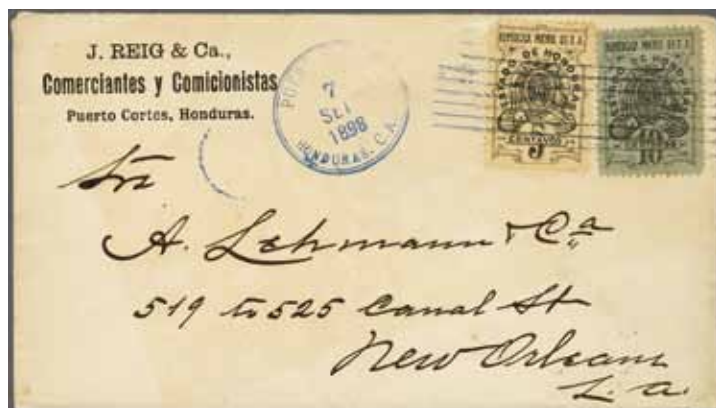 J. REIG & Ca.,
Comerciantes y Comicionistas
Puerto Cortes, Honduras.
7
SET
1898
HONDURAS. C. A.
REPUBLICA MAYOR DE C. A.
ESTADO DE HONDURAS
5
CENTAVOS
REPUBLICA MAYOR DE C. A.
ESTADO DE HONDURAS
10
10
Srs
A. Lehmann & Ca
519 to 525 Canal St
New Orleans
La.